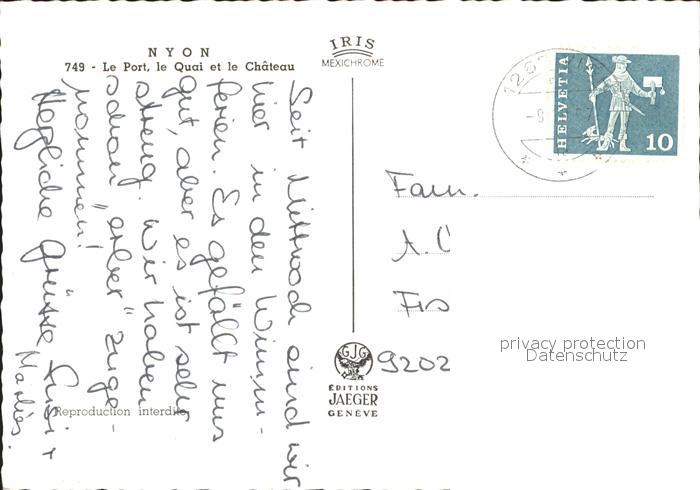 NYON
749 - Le Port, le Quai et le Château
IRIS
MEXICHROME
HELVETIA
10
Seit Mittwoch sind wir
hier in den Wimm-
ferien. Es gefällt uns
gut, aber es ist sehr
streng. Wir haben
schon "erber" zuge-
nommen!
Herzliche Grüsse Susi +
Marlies.
Fam.
9202
privacy protection
Datenschutz
GJG
ÉDITIONS
JAEGER
GENÈVE
Reproduction interdite